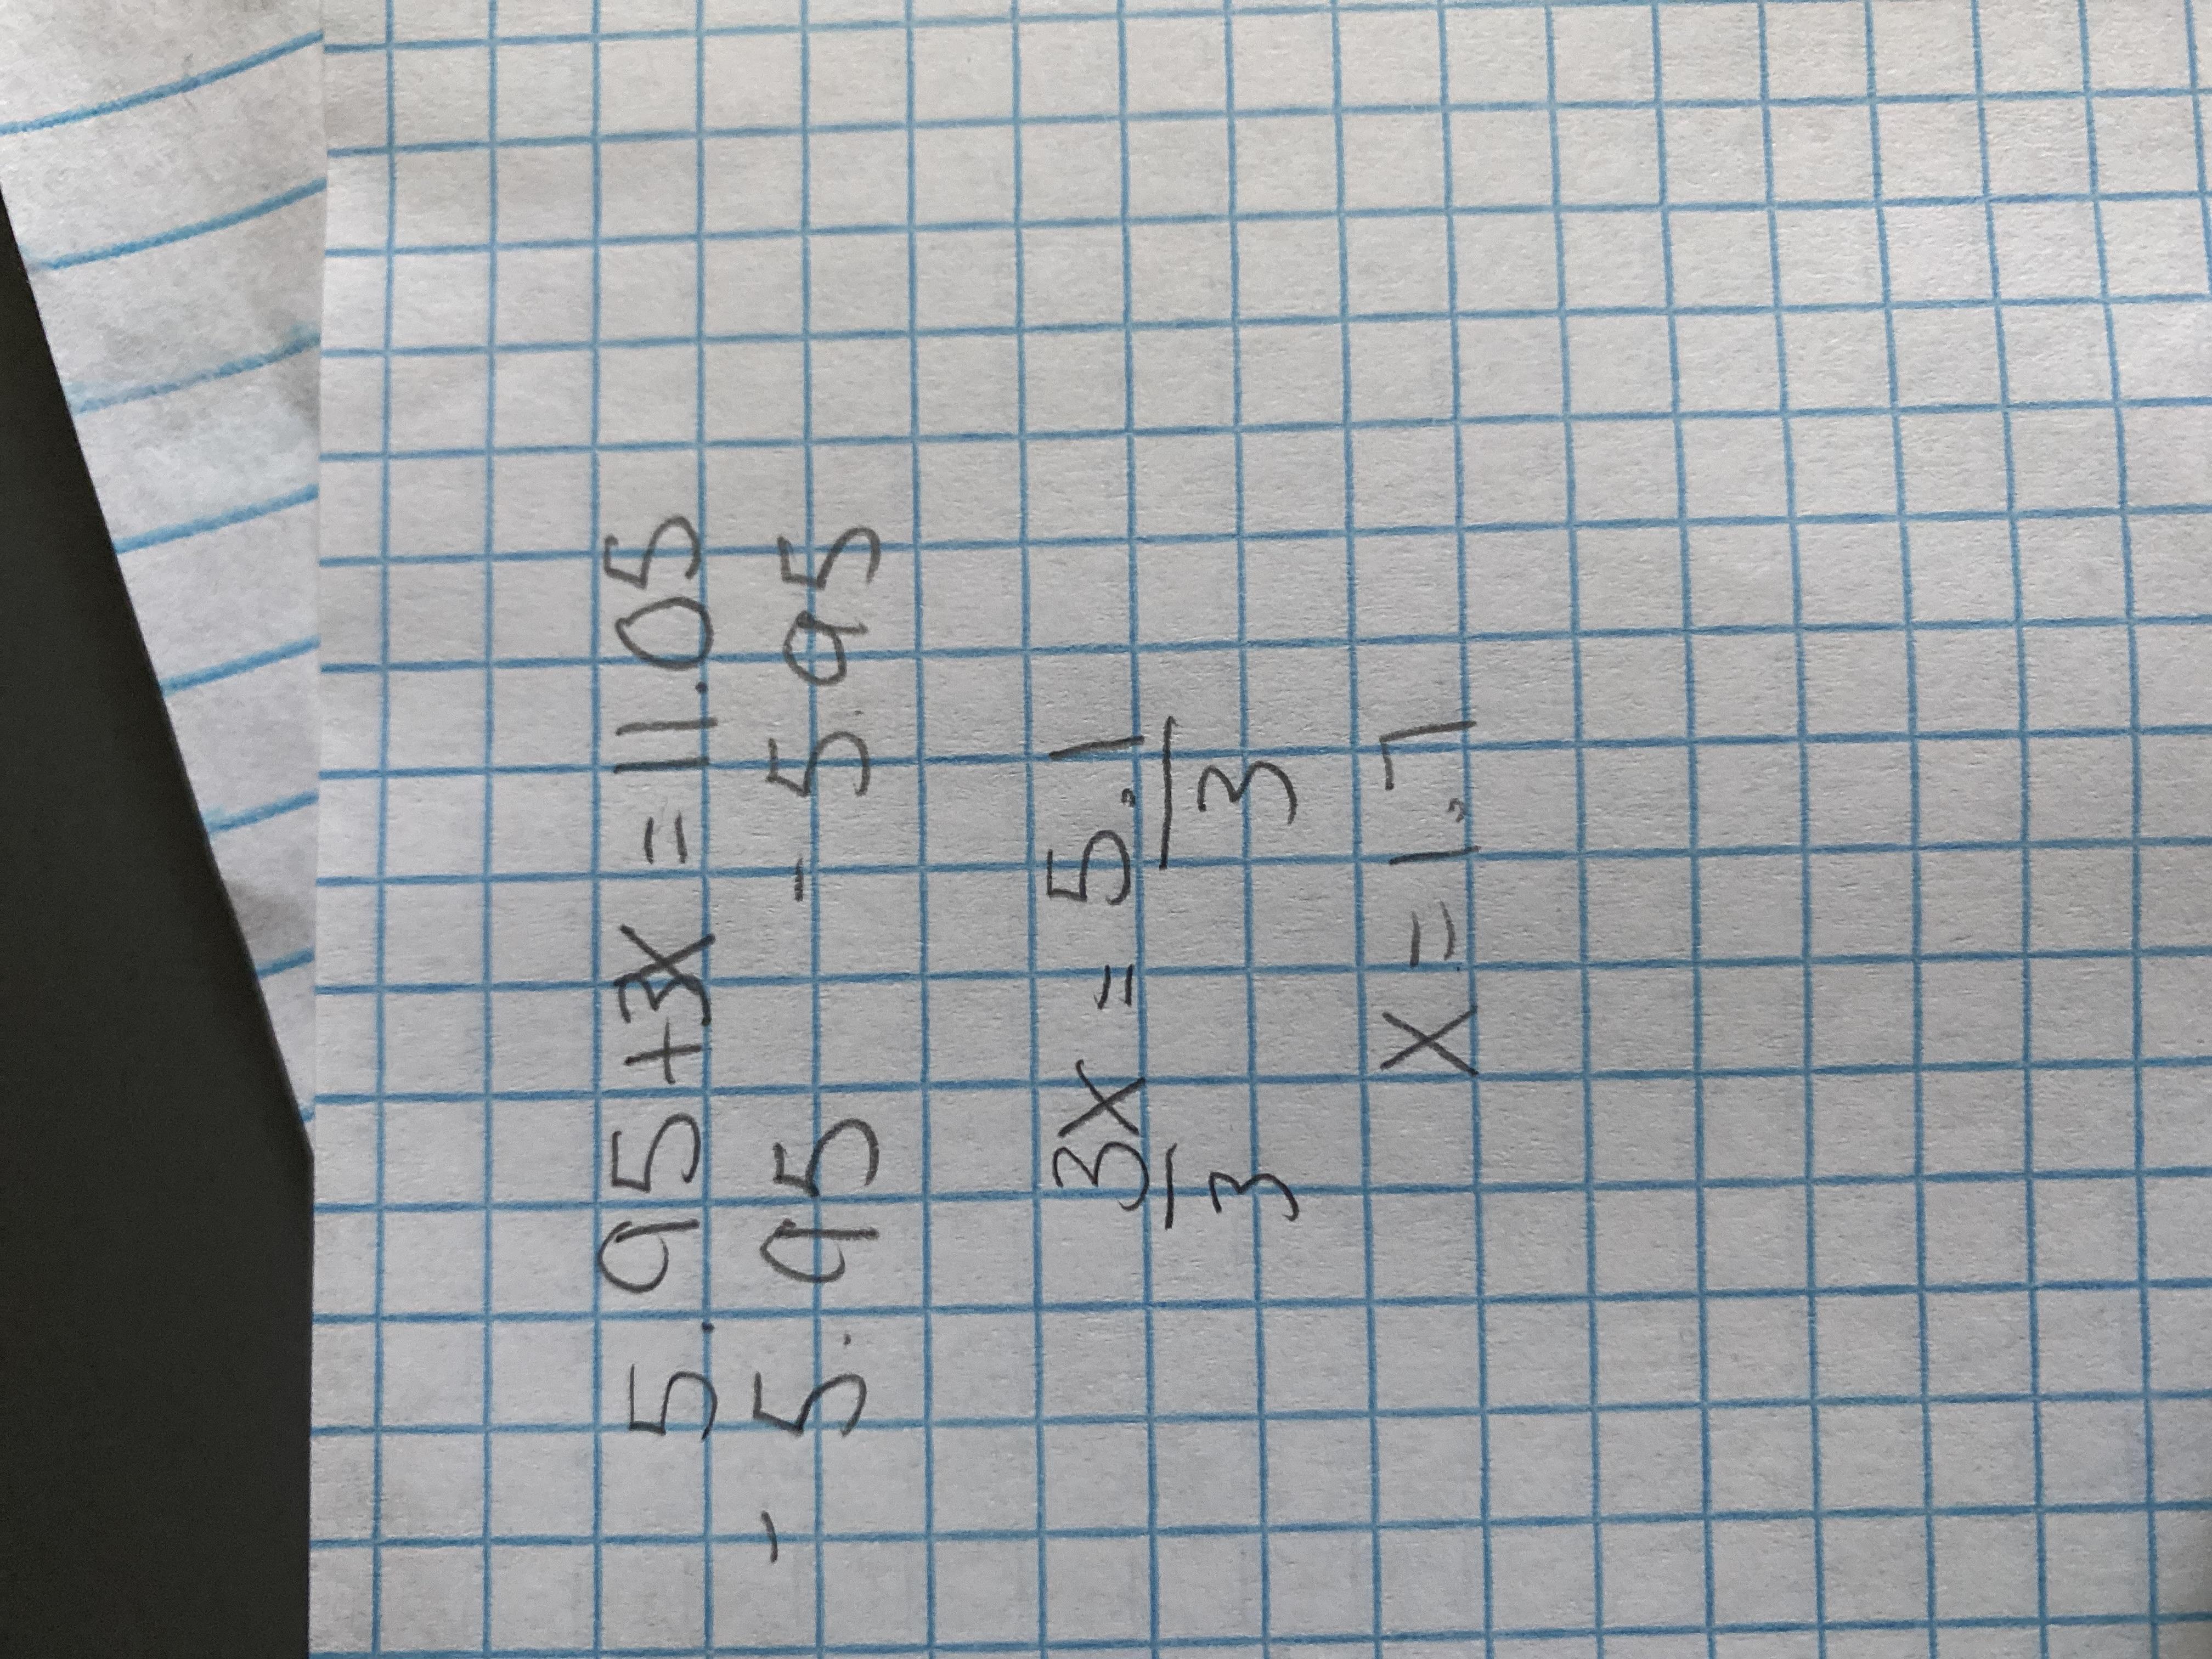 5.95+3x = 11.05
- 5.95 - 5.95
3x = 5.1
3 3
x = 1.7